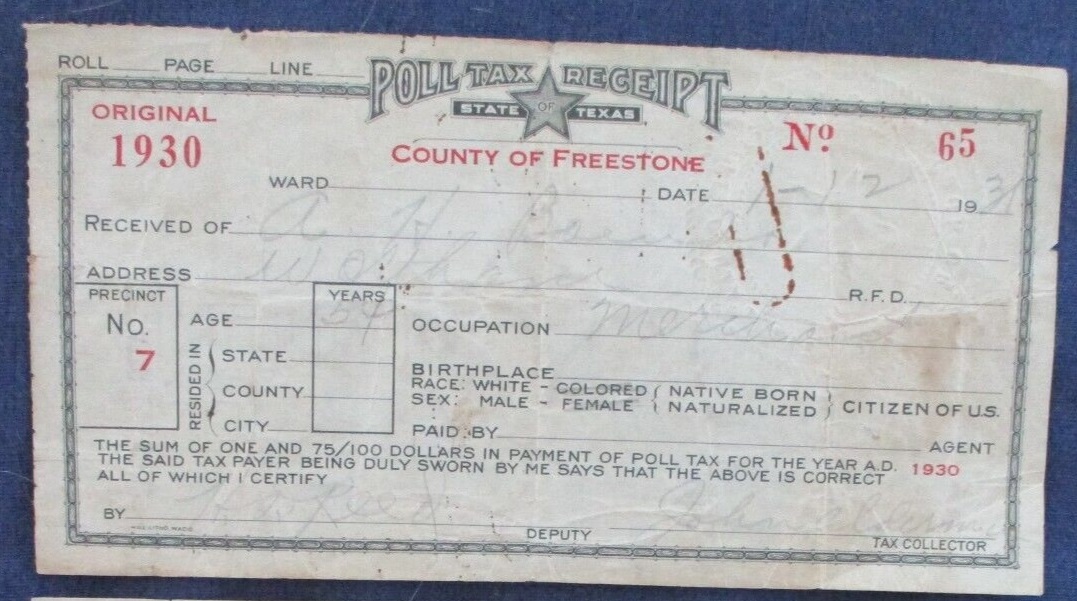 ROLL PAGE LINE
POLL TAX RECEIPT
STATE OF TEXAS
ORIGINAL
1930
No. 65
COUNTY OF FREESTONE
WARD DATE 1-12 1931
RECEIVED OF A. H.
ADDRESS Wortham R.F.D.
PRECINCT
No.
7
YEARS
AGE 54
RESIDED IN
STATE
COUNTY
CITY
OCCUPATION Merchant
BIRTHPLACE
RACE: WHITE - COLORED ( NATIVE BORN )
SEX: MALE - FEMALE ( NATURALIZED ) CITIZEN OF U.S.
PAID BY AGENT
THE SUM OF ONE AND 75/100 DOLLARS IN PAYMENT OF POLL TAX FOR THE YEAR A.D. 1930
THE SAID TAX PAYER BEING DULY SWORN BY ME SAYS THAT THE ABOVE IS CORRECT
ALL OF WHICH I CERTIFY
BY Reed DEPUTY
John
TAX COLLECTOR